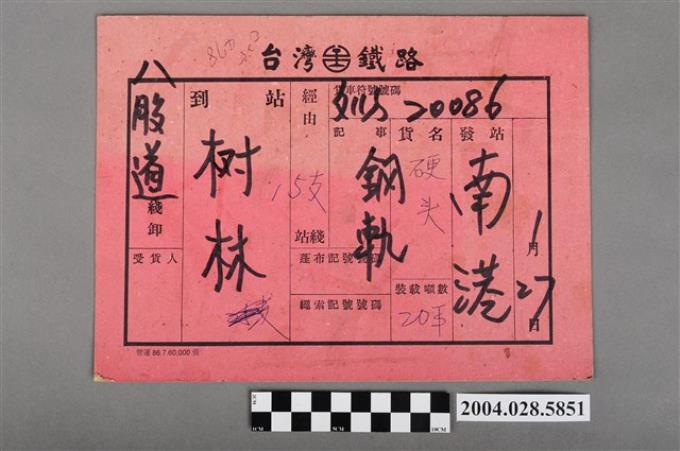 台灣鐵路
貨車符號號碼
20086
1月27日
發站
南港
貨名
硬头
裝載噸數
20
記事
鋼軌
經由
綫站
篷布記號號碼
繩索記號號碼
到站
树林
15支
八股道
綫卸
受貨人
管運86.7.60,000張
2004.028.5851